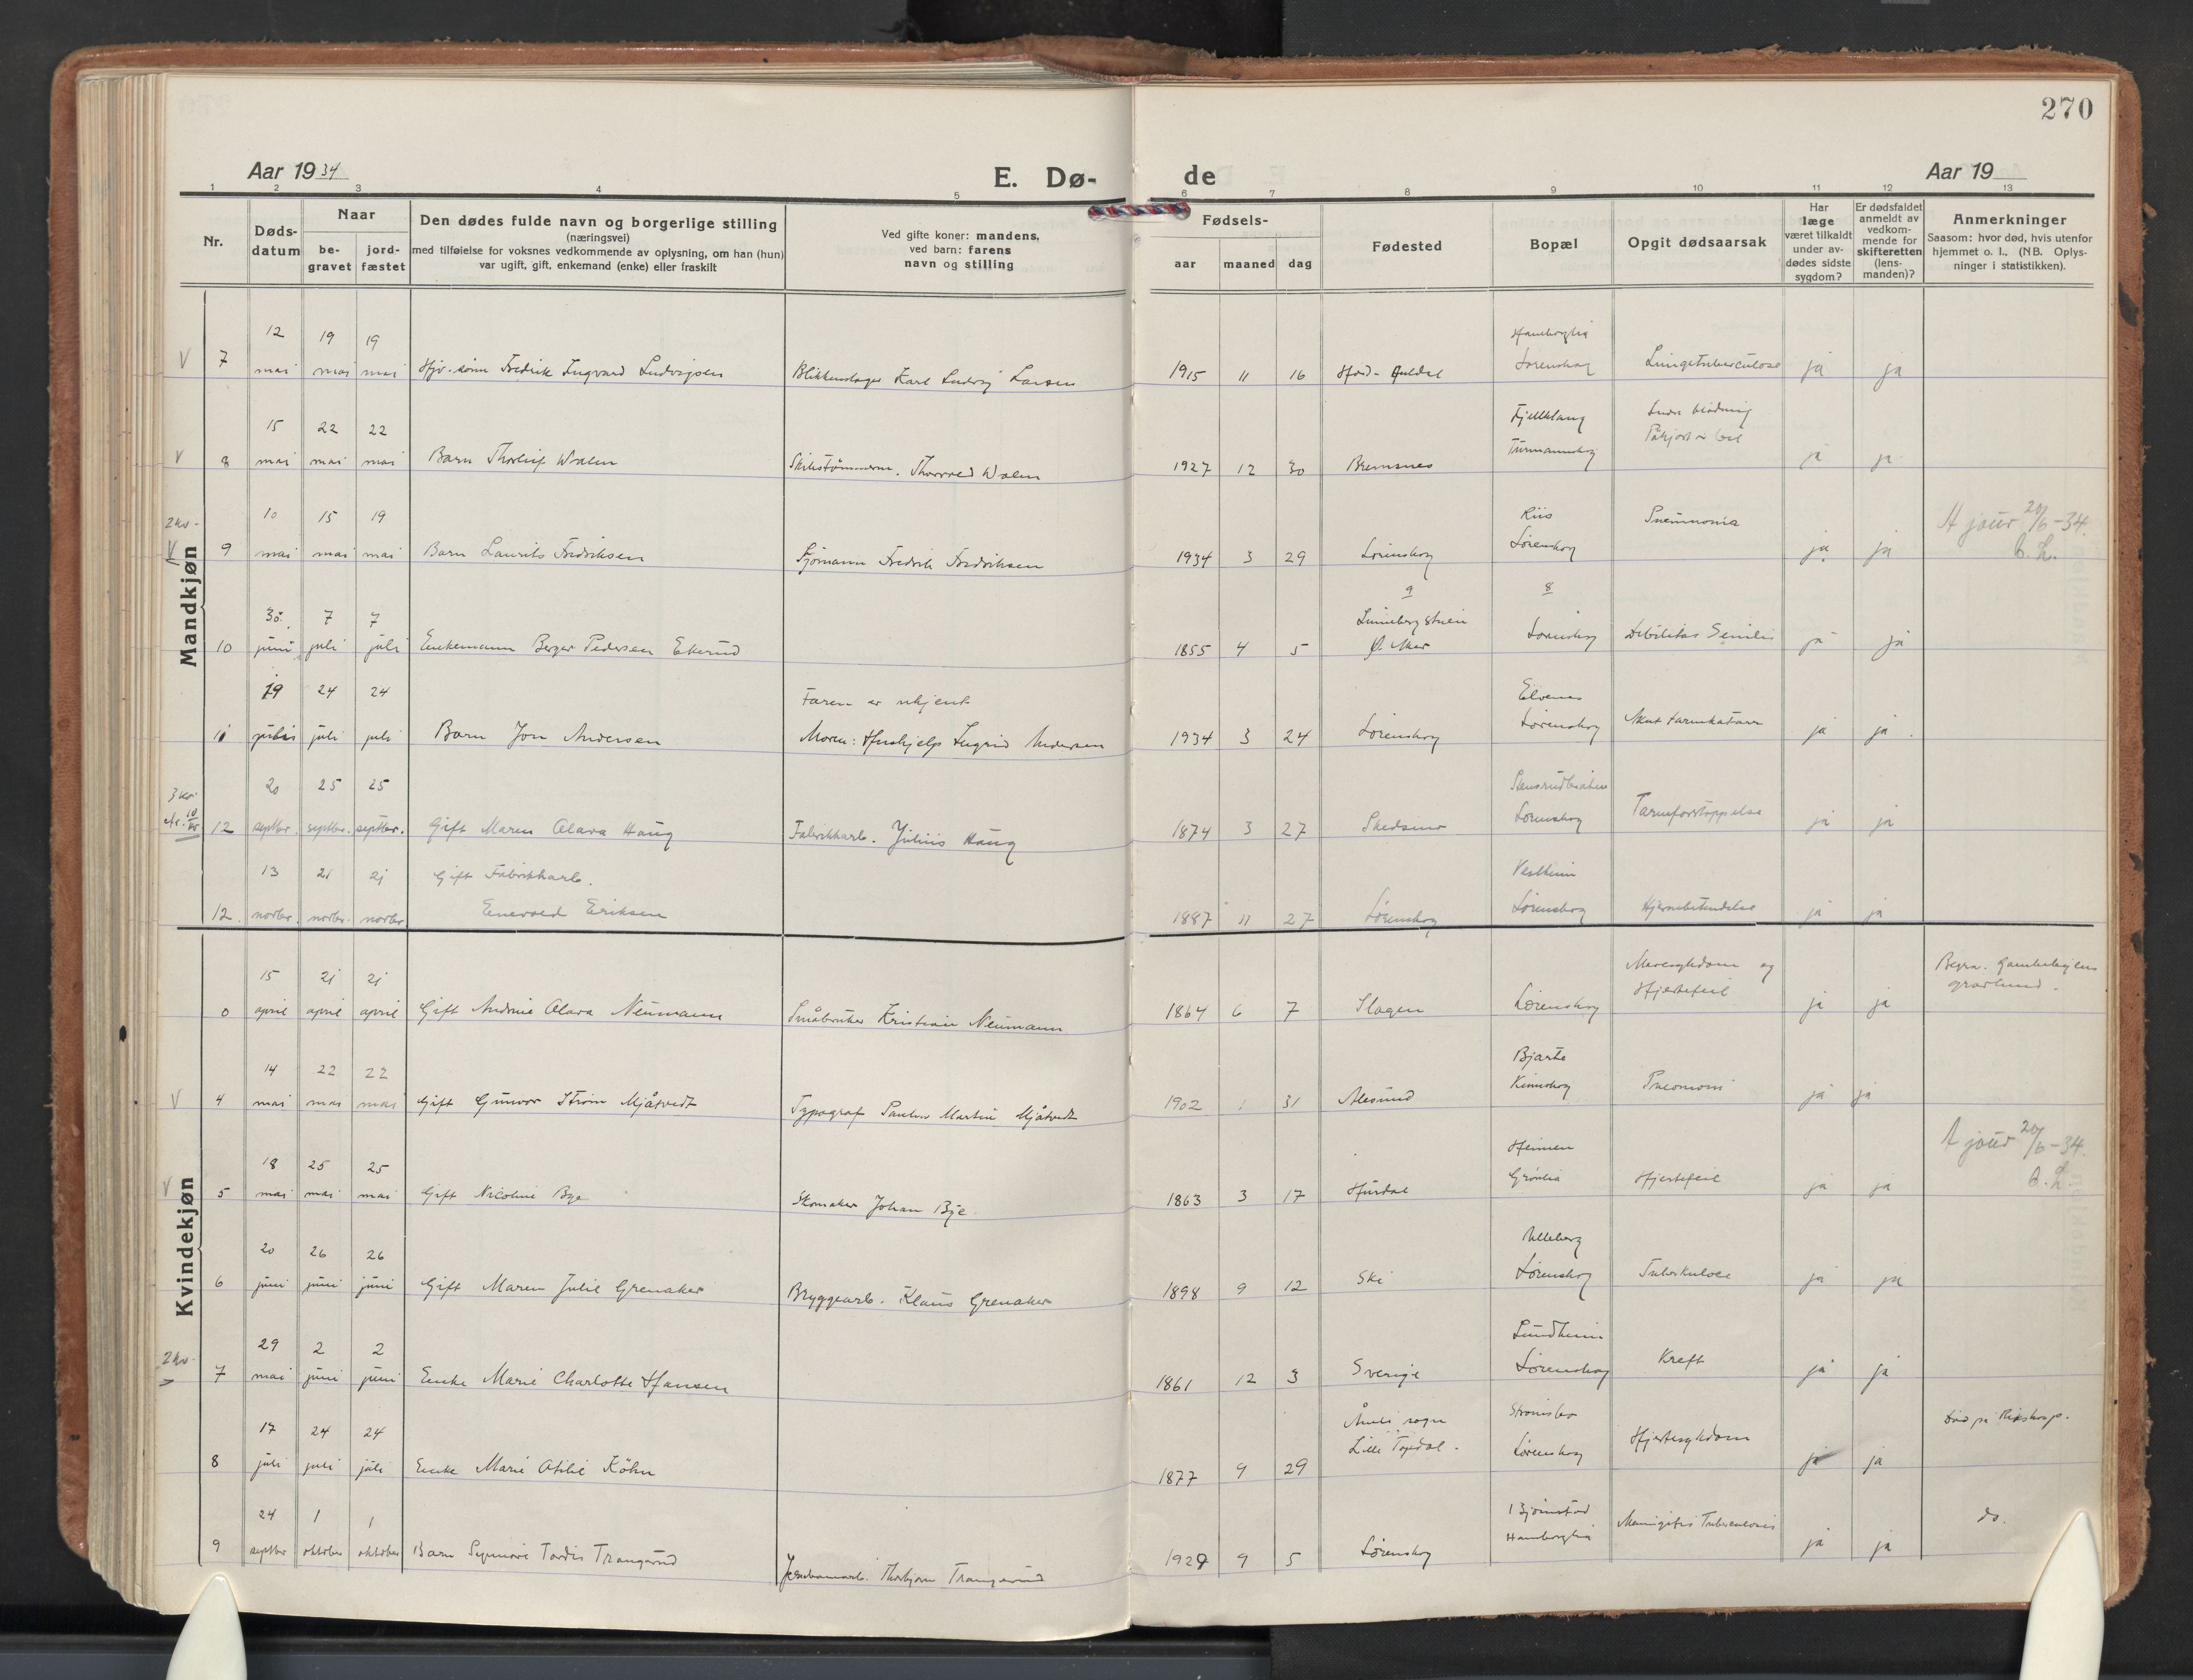 270
Aar 1934
E. Dø-
de
Aar 19
1 2 3 4 5 6 7 8 9 10 11 12 13
Nr.
Døds-
datum
Naar
be-
gravet
jord-
fæstet
Den dødes fulde navn og borgerlige stilling
(næringsvei)
med tilføielse for voksnes vedkommende av oplysning, om han (hun)
var ugift, gift, enkemand (enke) eller fraskilt
Ved gifte koner: mandens,
ved barn: farens
navn og stilling
Fødsels-
aar maaned dag
Fødested
Bopæl
Opgit dødsaarsak
Har
læge
været tilkaldt
under av-
dødes sidste
sygdom?
Er dødsfaldet
anmeldt av
vedkom-
mende for
skifteretten
(lens-
manden)?
Anmerkninger
Saasom: hvor død, hvis utenfor
hjemmet o. l., (NB. Oplys-
ninger i statistikken).
Mandkjøn
12 19 19 Hamborglia
V 7 mai mai mai Hjv. sønn Fredrik Ingvard Ludvigsen Blikkenslager Karl Ludvig Larsen 1915 11 16 Lørenskog Lungetuberculose ja ja
15 22 22 Fjellklang
V 8 mai mai mai Barn Thorleif Walen Thorvald Walen 1927 12 30 Bremsnes ja ja
2 kv - 10 15 19 Riis Pneumonia A jour 20/6-34.
V 9 mai mai mai Barn Laurits Fredriksen Sjømann Fredrik Fredriksen 1934 3 29 Lørenskog Lørenskog ja ja
9 8
30. 7 7
10 juni juli juli Enkemann Berger Pedersen Ekerud 1855 4 5 Ø. Aker Lørenskog Debilitas Senilis ja ja
19 24 24 Faren er ukjent Elvenes
11 juli juli juli Barn Jon Andersen Moren: Hushjelp Ingrid Andersen 1934 3 24 Lørenskog Lørenskog Akut tarmkatarr ja ja
20 25 25
12 septbr. septbr. septbr. Gift Maren Olava Haug Fabrikkarb. Julius Haug 1874 3 27 Skedsmo Lørenskog Tarmforstoppelse ja ja
13 21 21 Gift Fabrikkarb. Vestheim
12. novbr. novbr. novbr Enevold Eriksen 1887 11 27 Lørenskog Lørenskog Hjernebetendelse ja ja
Kvindekjøn
15 21 21 og
0 april april april Gift Andrine Olava Neumann Småbruker Kristian Neumann 1864 6 7 Slagen Lørenskog Hjertefeil ja ja gravlund.
14 22 22 Bjarte
V 4 mai mai mai Gift Gunvor Strøm Mjåtvedt Typograf Paulus Martin Mjåtvedt 1902 1 31 Ålesund Pneomoni ja ja
18 25 25 Heimen A jour 20/6-34.
V 5 mai mai mai Gift Nicoline Bye Skomaker Johan Bye 1863 3 17 Hurdal Grønlia Hjertefeil ja ja
20 26 26 Ulleberg
6 juni juni juni Gift Maren Julie Grenaker Bryggearb. Klaus Grenaker 1898 9 12 Ski Lørenskog Tuberkulose ja ja
2 kv - 29 2 2 Lundheim
7 mai juni juni Enke Marie Charlotte Hansen 1861 12 3 Sverige Lørenskog Kreft ja ja
17 24 24 Åmli sogn Død på Rikshosp.
8 juli juli juli Enke Marie Otilie Köhn 1877 9 29 Lille Topdal. Lørenskog Hjertesykdom ja ja
24 1 1 Bjørnstad do.
9 septbr oktober oktober Barn Synnøve Tordis Trangerud Thorbjørn Trangerud 1929 9 5 Lørenskog Hamborglia Meningitis Tuberculosis ja ja